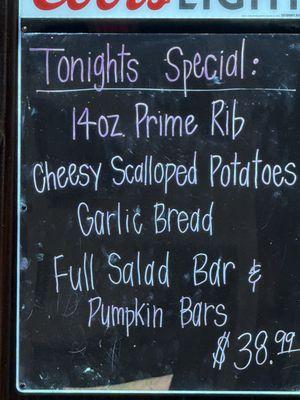 Coors LIGHT
Tonights Special:
14oz. Prime Rib
Cheesy Scalloped Potatoes
Garlic Bread
Full Salad Bar &
Pumpkin Bars
$38.99